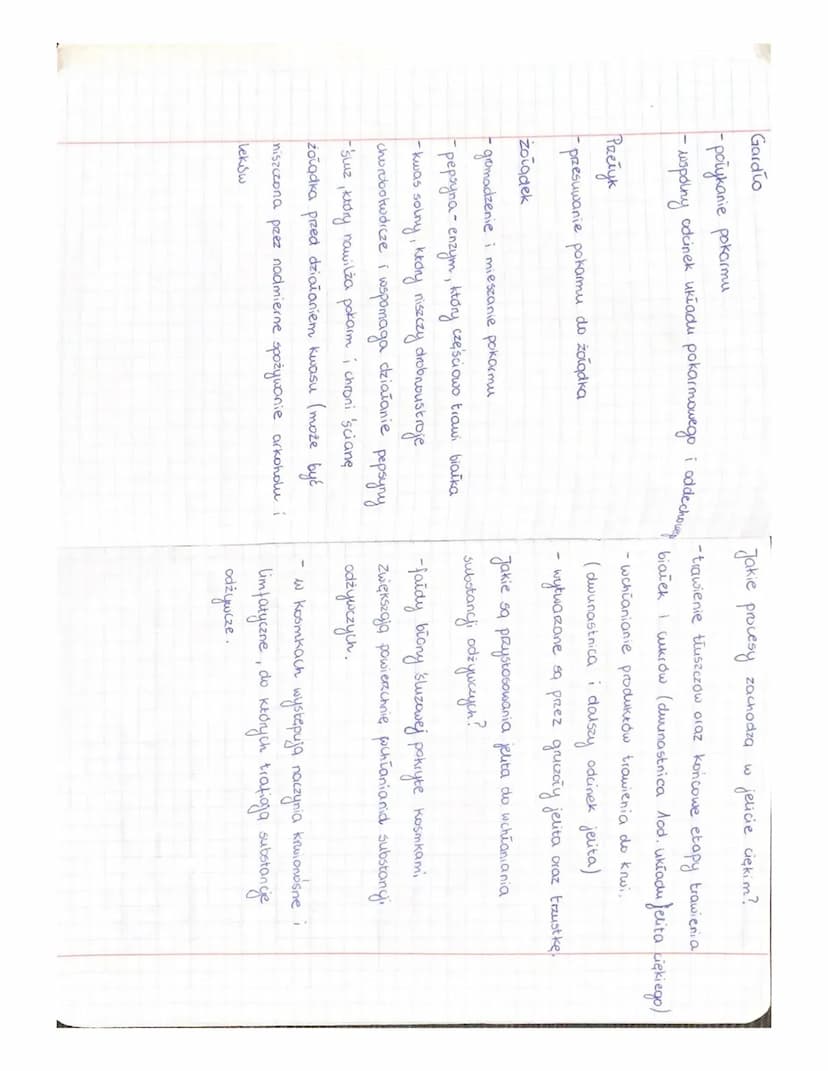 Gardło
- połykanie pokarmu
- wspólny odcinek układu pokarmowego i oddechowego
Przełyk
- przesuwanie pokarmu do żołądka
żołądek
- gromadzenie i mieszanie pokarmu
- pepsyna - enzym, który częściowo trawi białka
- kwas solny, który niszczy drobnoustroje
chorobotwórcze i wspomaga działanie pepsyny
- śluz, który nawilża pokarm i chroni ścianę
żołądka przed działaniem kwasu (może być
niszczona przez nadmierne spożywanie alkoholu i
leków
Jakie procesy zachodzą w jelicie cięki m?
- trawienie tłuszczów oraz końcowe etapy trawienia
białek i cukrów (dwunastnica 1od. układu jelita ciękiego)
- wchłanianie produktów trawienia do krwi.
(dwunastnica i dalszy odcinek jelita)
- wytwarzane są przez gruczoły jelita oraz trzustkę.
Jakie są przystosowania jelita do wchłaniania
substancji odżywczych?
- fałdy błony śluzowej pokryte kosmkami
zwiększają powierzchnię wchłaniania substancji
odżywczych.
- w kosmkach występują naczynia krwionośne i
limfatyczne, do których trafiają substancje
odżywcze.